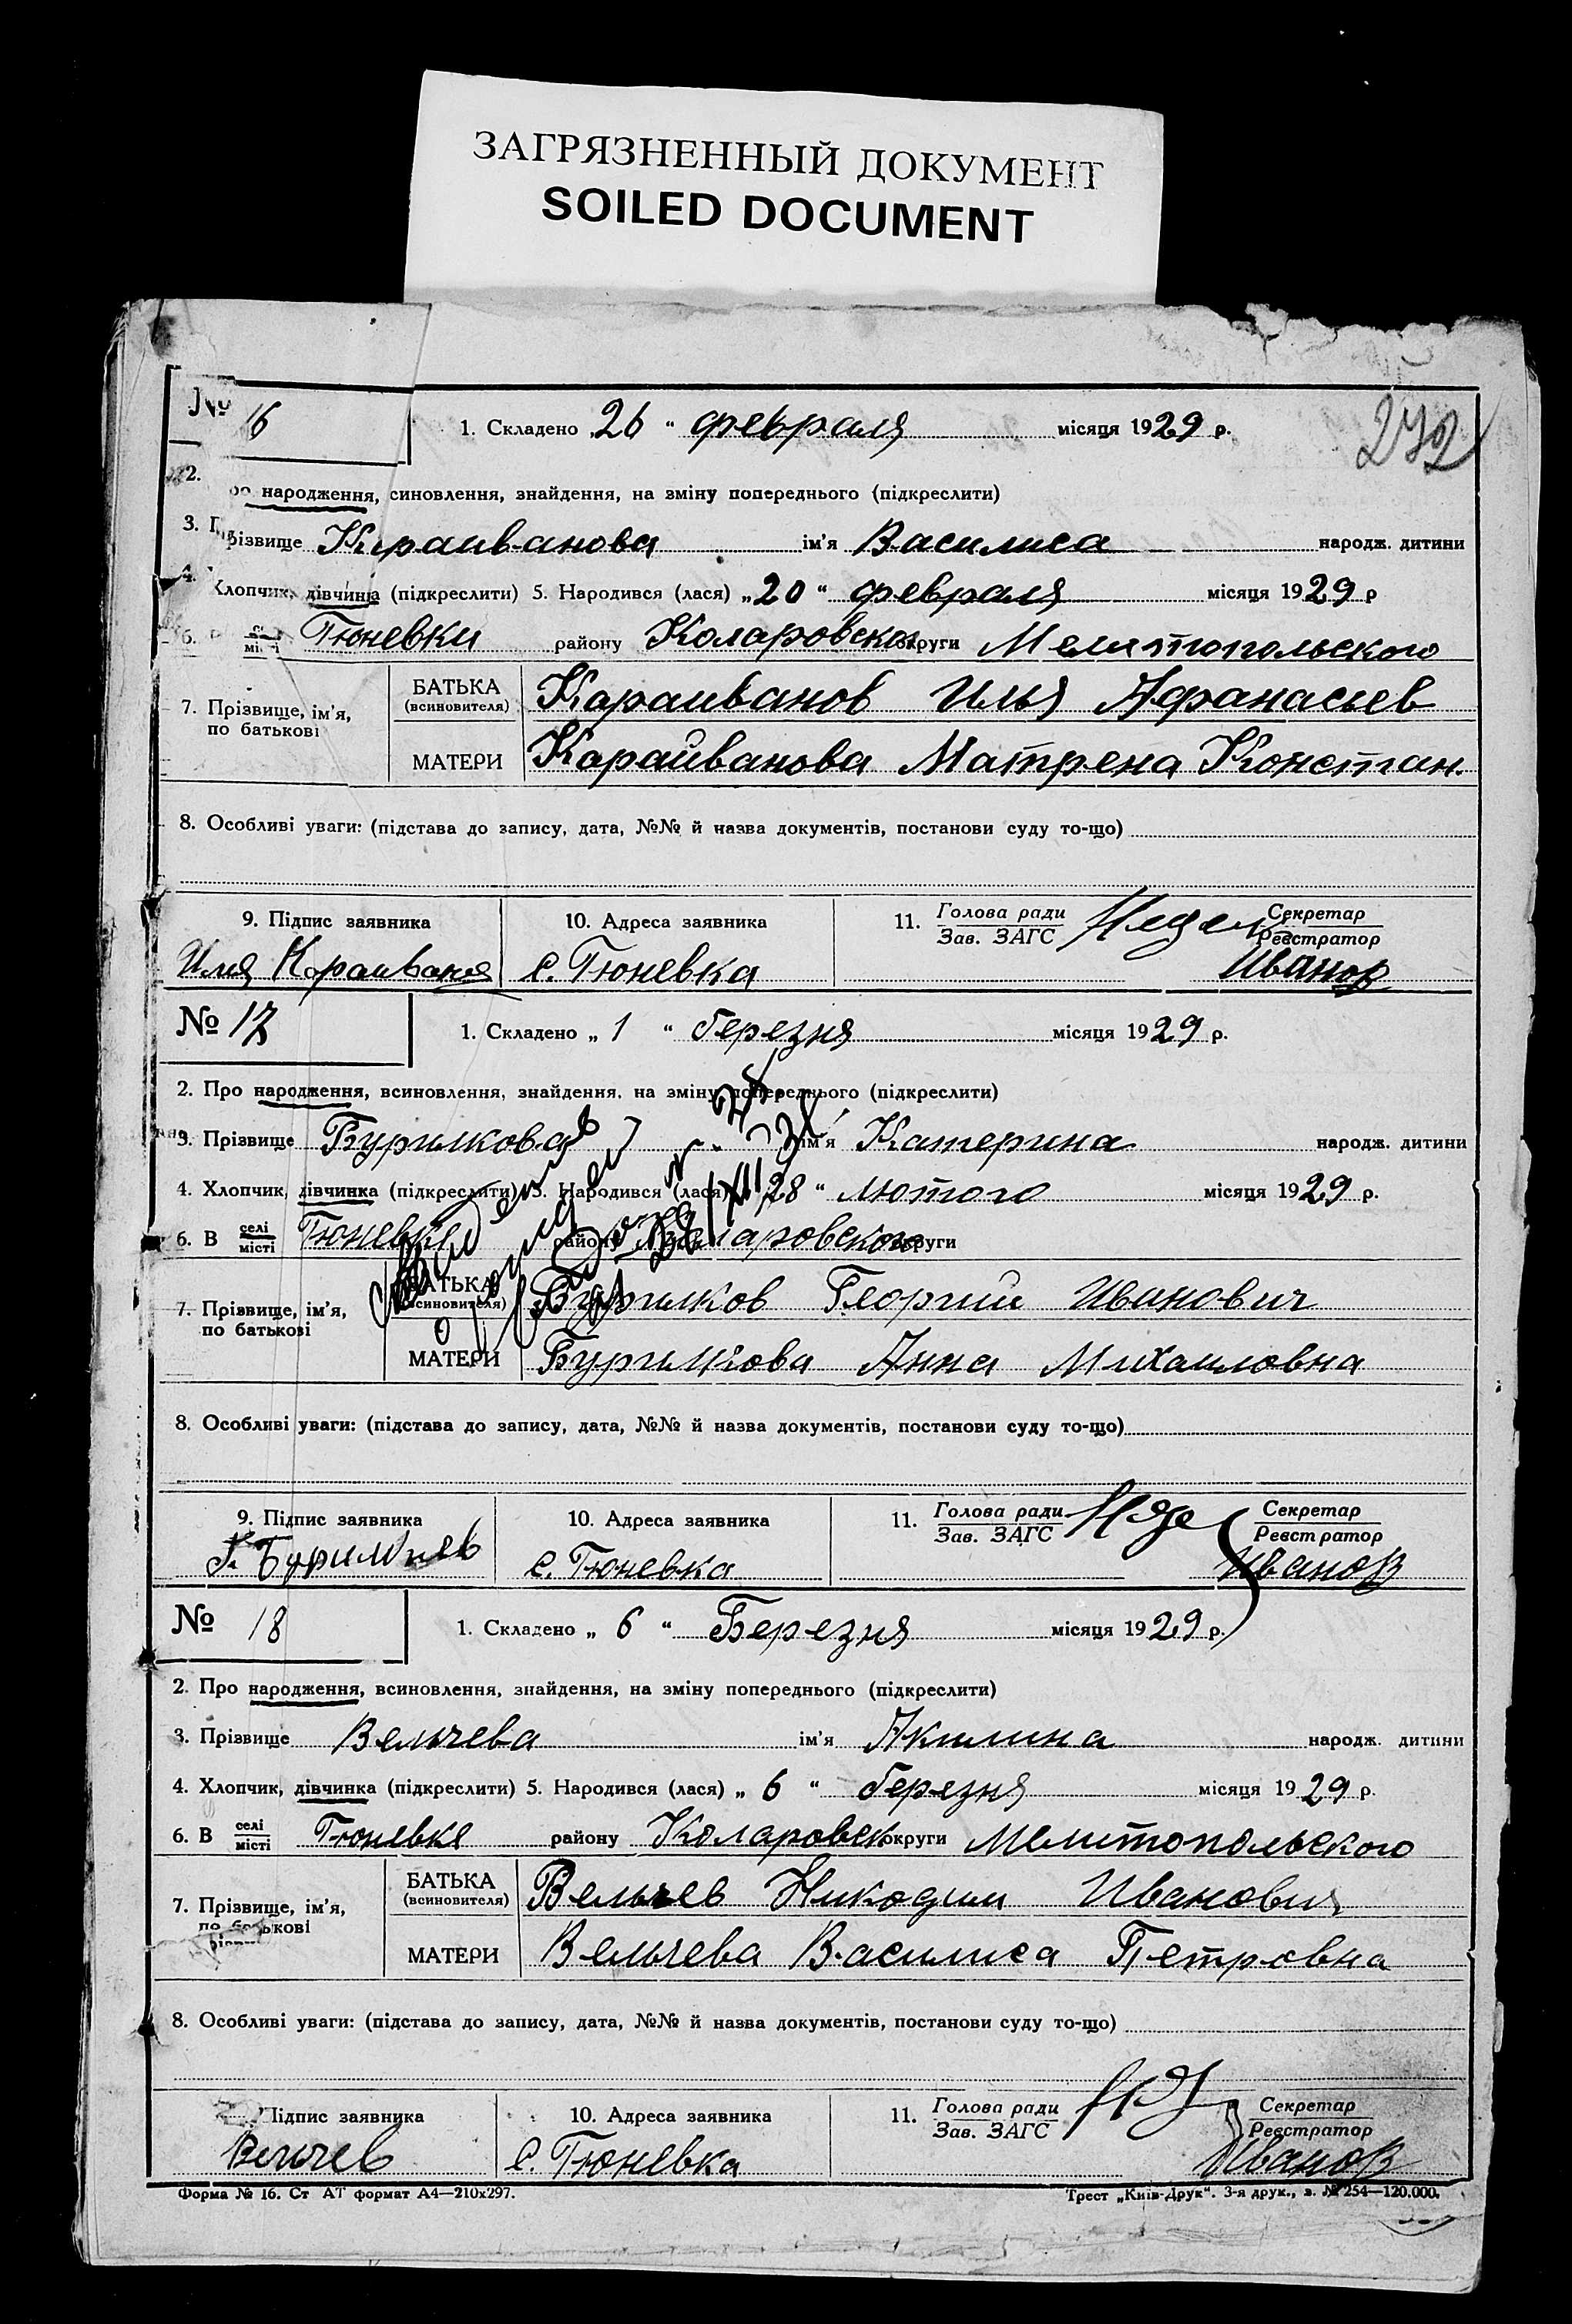 ЗАГРЯЗНЕННЫЙ ДОКУМЕНТ
SOILED DOCUMENT
272
№ 16
1. Складено „26“ февраля місяця 1929 р.
2. Про народження, всиновлення, знайдення, на зміну попереднього (підкреслити)
3. Прізвище Караиванова ім'я Василиса народж. дитини
4. Хлопчик, дівчинка (підкреслити) 5. Народився (лася) „20“ февраля місяця 1929 р
6. В селі місті Тюневки району Коларовского округи Мелитопольского
7. Прізвище, ім'я, по батькові
БАТЬКА (всиновителя) Караиванов Илья Афанасьев
МАТЕРИ Карайванова Матрена Констан.
8. Особливі уваги: (підстава до запису, дата, №№ й назва документів, постанови суду то-що)
9. Підпис заявника
10. Адреса заявника
11. Голова ради Зав. ЗАГС
Секретар Реєстратор
Иля Караиваня
с. Тюневка
Иванов
№ 17
1. Складено „1“ березня місяця 1929 р.
2. Про народження, всиновлення, знайдення, на зміну попереднього (підкреслити)
3. Прізвище Бурилкова ім'я Катерина народж. дитини
4. Хлопчик, дівчинка (підкреслити) 5. Народився (лася) „28“ лютого місяця 1929 р.
6. В селі місті Тюневке району Коларовского округи
7. Прізвище, ім'я, по батькові
БАТЬКА (всиновителя) Бурилков Георгий Иванович
МАТЕРИ Бурилкова Анна Михаиловна
8. Особливі уваги: (підстава до запису, дата, №№ й назва документів, постанови суду то-що)
9. Підпис заявника
10. Адреса заявника
11. Голова ради Зав. ЗАГС
Секретар Реєстратор
с. Тюневка
Иванов
№ 18
1. Складено „6“ Березня місяця 1929 р.
2. Про народження, всиновлення, знайдення, на зміну попереднього (підкреслити)
3. Прізвище Вельчева ім'я Акилина народж. дитини
4. Хлопчик, дівчинка (підкреслити) 5. Народився (лася) „6“ березня місяця 1929 р.
6. В селі місті Тюневке району Коларовск округи Мелитопольского
7. Прізвище, ім'я, по батькові
БАТЬКА (всиновителя) Вельчев Никодим Иванович
МАТЕРИ Вельчева Василиса Петровна
8. Особливі уваги: (підстава до запису, дата, №№ й назва документів, постанови суду то-що)
Підпис заявника
10. Адреса заявника
11. Голова ради Зав. ЗАГС
Секретар Реєстратор
Вельчев
с. Тюневка
Иванов
Форма № 16. Ст АТ формат А4—210х297.
Трест „Київ-Друк“. 3-я друк., з. № 254—120.000.